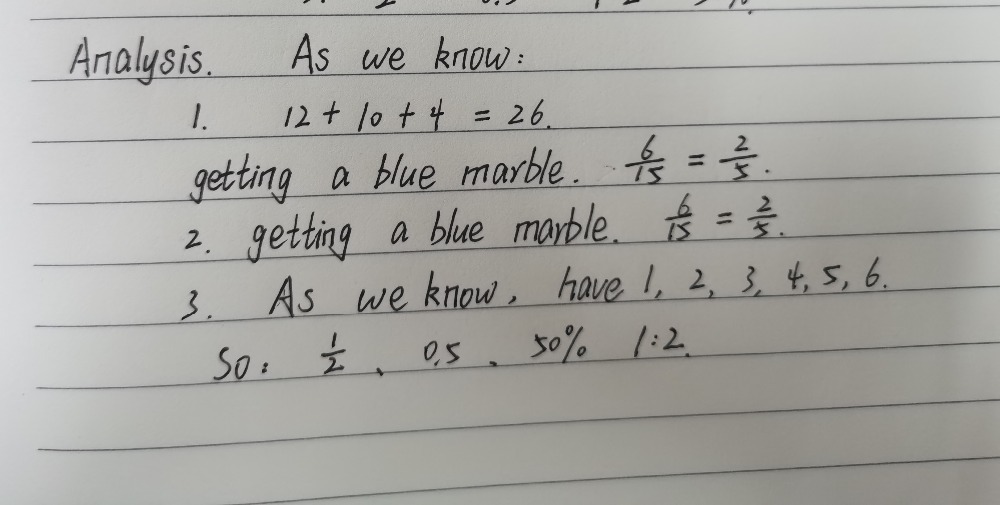 Analysis. As we know:
1. 12 + 10 + 4 = 26.
getting a blue marble. 6/15 = 2/5.
2. getting a blue marble. 6/15 = 2/5.
3. As we know, have 1, 2, 3, 4, 5, 6.
So: 1/2、0.5、50% 1:2.